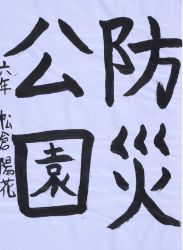 防災
公園
六年 松倉陽花